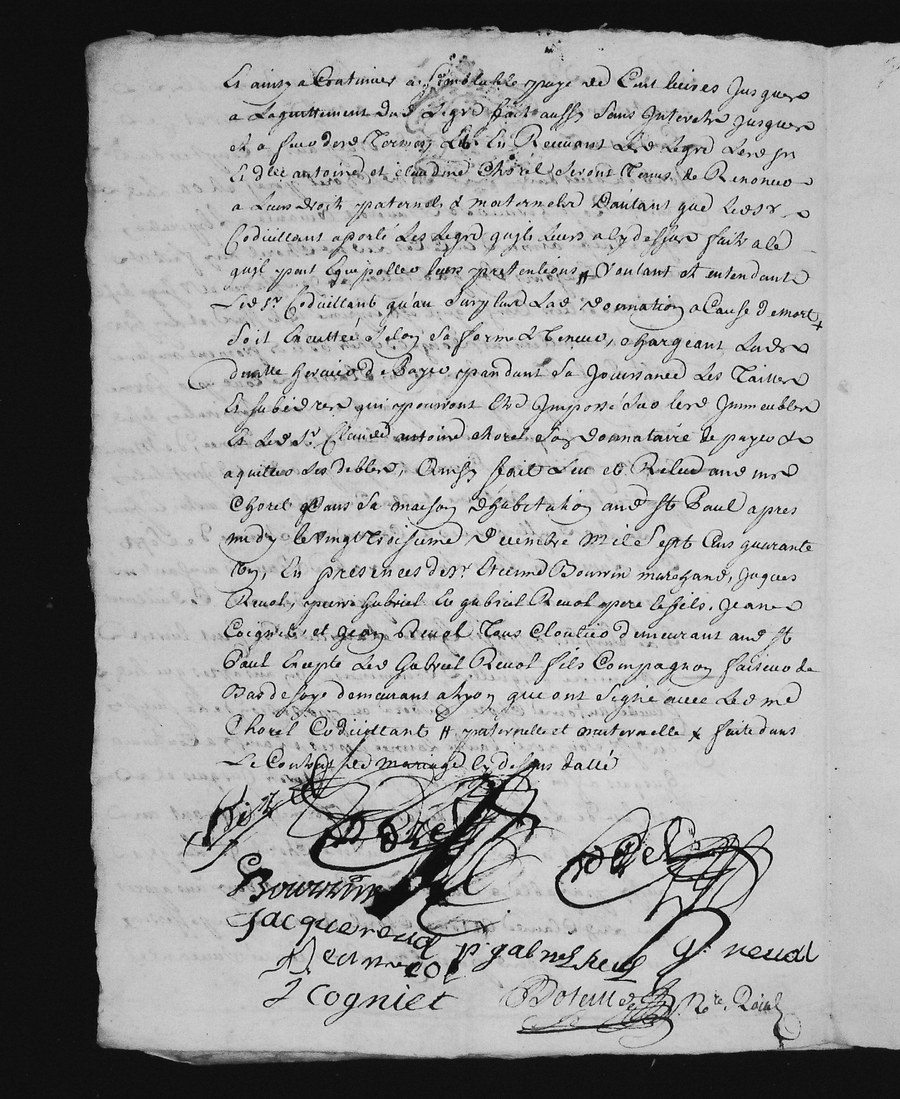 Et ainsy a Continuer a Semblable paye de Cent livres Jusques
a Laquittement dud Legat fait aussy Sans Interets Jusques
et a fur desd Termes, Et En Recevant Led Legat Lesd Sr
Et dlle antoine et claudine Chorel Seront Tenus de Renoncer
a Leurs droits paternels & maternels Dautant que Led Sr
Codicillant a porté Les Legat quils Leurs a cy dessus faits a ce
quil peut Equipoller leurs pretentions # Voulant et entendant
Led Sr Codicillant qu'au Surplus Lad donnation a Cause de mort +
Soit Executtée Selon Sa forme & Teneur, chargeant Lad
dlle de Payer pendant Sa Jouissance Les Tailles
Et Subsides qui pourront Etre Imposé Sur lesd Immeubles
Et Led Sr Claude antoine chorel Son donnataire de payer &
aquitter Les debtes, Ainsy fait Leu et Releu aud me
Chorel Dans Sa maison dhabitation aud St Paul apres
midy le vingt Troisieme Decembre Mil Sept Cens quarante
En presences de Sr Etienne Bourrin marchand, Jaques
Revol, pierre Gabriel Et gabriel Revol pere & fils, Jean
Coigniet, et Jean Revol Tous Cloutier demeurant aud St
Paul Excepte Led Gabriel Revol fils Compagnon faiseur de
Bas de soye demeurant a Lyon que ont Signé avec Led me
Chorel Codicillant # paternelle et maternelle + faite dans
Le Contrat de mariage Cy dessus datté
Chorel
Bourrin
Jacque revol
p. gabriel revol G. revol
J Cogniet Nre Roial